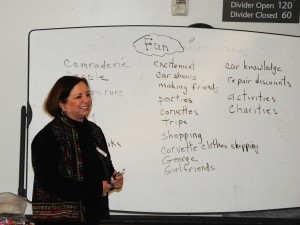 Divider Open 120
Divider Closed 60
Fun
Comraderie
runs
excitement
Car shows
making friends
parties
corvettes
trips
shopping
corvette clothes shopping
George
Girlfriends
car knowledge
repair discounts
activities
Charities